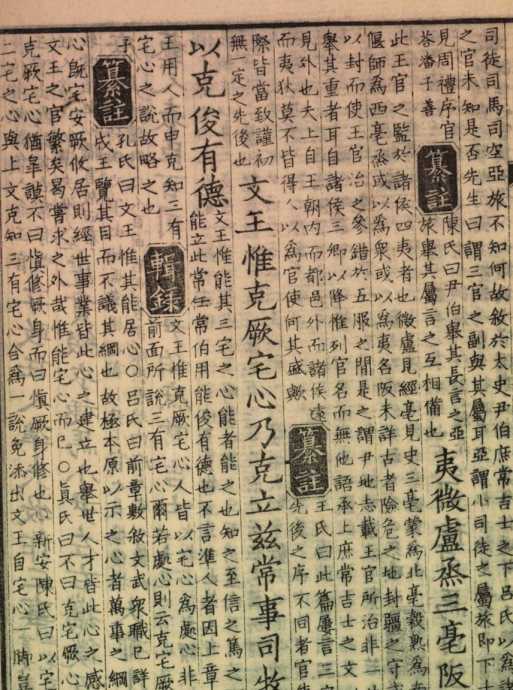 司徒司馬司空亞旅不知何故敘於太史尹伯庶常吉士之下呂氏以爲諸
之官未知是否先生曰謂三官之副與其屬耳亞謂小司徒之屬旅即下士
見周禮序官
答潘子善
纂註
陳氏曰尹伯舉其長言之亞
旅舉其屬言之互相備也
夷微盧烝三亳阪
此王官之監於諸侯四夷者也微盧見經亳見史三亳蒙爲北亳穀熟爲
偃師爲西亳烝或以爲衆或以爲夷名阪未詳古者險危之地封疆之守
以封而使王官治之參錯於五服之間是之謂尹地志載王官所治非
舉其重者耳自諸侯三卿以降惟列官名而無他語承上庶常吉士之文
見外也夫上自王朝內而都邑外而諸侯遠
而夷狄莫不皆得人以爲官使何其盛歟
纂註
王氏曰此篇屢言三
先後之序不同者官
際皆當致謹初
無一定之先後也
文王惟克厥宅心乃克立茲常事司牧
以克俊有德
文王惟能其三宅之心能者能之也知之至信之篤之
能立此常任常伯用能俊有德也不言準人者因上章
王用人而申克知三有
宅心之說故略之也
輯錄
文王惟克厥宅心人皆以宅心爲處心非
前面所說三有宅心爾若處心則云克宅厥
子
纂註
孔氏曰文王惟其能居心○呂氏曰前章敷敘文武衆職已詳
成王覽其目而不識其綱也故極本原以示之心者萬事之綱
心既宅安厥攸居則經世事業皆此心之建立也舉世人才皆此心之感
文王之官繁矣曷嘗求之外哉惟能宅心而已○眞氏曰不曰克宅厥心
克厥宅心猶皋謨不曰愼修厥身而曰愼厥身修也 新安陳氏曰以宅
二宅之心與上文克知三有宅心合爲一說免添出文王自宅心一脚豈